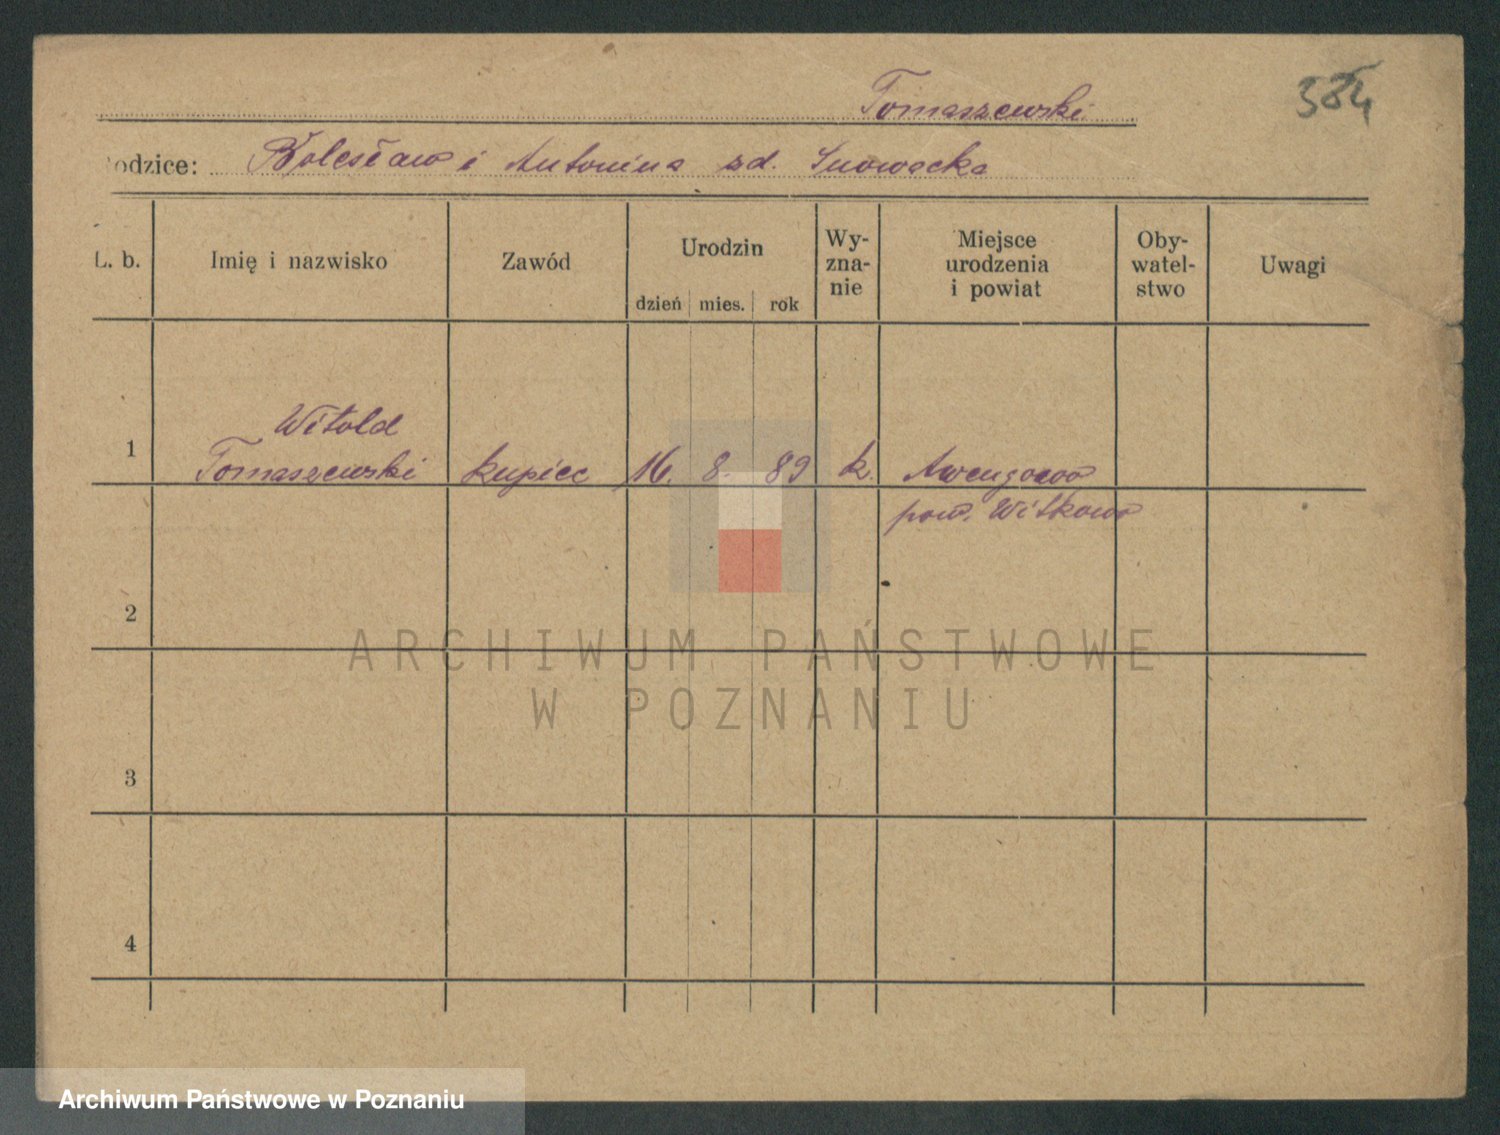 384
Tomaszewski
odzice: Bolesław i Antonina zd.
L. b.
Imię i nazwisko
Zawód
Urodzin
dzień mies. rok
Wy-
zna-
nie
Miejsce
urodzenia
i powiat
Oby-
watel-
stwo
Uwagi
Witold
1 Tomaszewski kupiec 16. 8. 89 k.
pow. Witkowo
2
3
4
ARCHIWUM PAŃSTWOWE
W POZNANIU
Archiwum Państwowe w Poznaniu